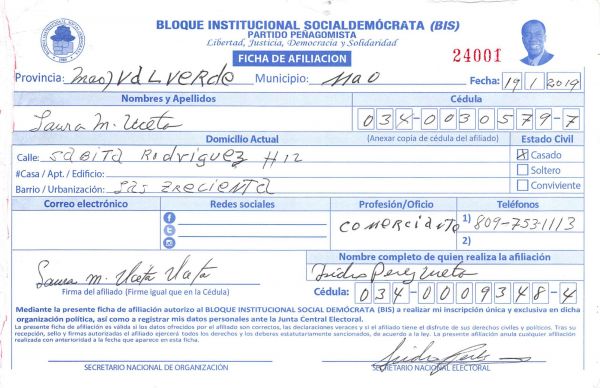 BLOQUE INSTITUCIONAL SOCIALDEMÓCRATA (BIS)
PARTIDO PEÑAGOMISTA
Libertad, Justicia, Democracia y Solidaridad
FICHA DE AFILIACION
24001
Provincia: Mao) ValVerde Municipio: Mao Fecha: 19 1 2019
Nombres y Apellidos Cédula
Laura M. Uceta 034-0030579-7
Domicilio Actual (Anexar copia de cédula del afiliado) Estado Civil
Calle: SABITA Rodriguez #12 X Casado
#Casa / Apt. / Edificio: Soltero
Barrio / Urbanización: Las Conviviente
Correo electrónico Redes sociales Profesión/Oficio Teléfonos
comerciante 1) 809-753-1113
2)
Nombre completo de quien realiza la afiliación
Laura M. Uceta Uceta Isidro Perez Uceta
Firma del afiliado (Firme igual que en la Cédula) Cédula: 034-0009348-4
Mediante la presente ficha de afiliación autorizo al BLOQUE INSTITUCIONAL SOCIAL DEMÓCRATA (BIS) a realizar mi inscripción única y exclusiva en dicha
organización política, así como a registrar mis datos personales ante la Junta Central Electoral.
La presente ficha de afiliación es válida si las datos ofrecidos por el afiliado son correctos, las declaraciones veraces y si el afiliado tiene el disfrute de sus derechos civiles y políticos. Tras su
recepción, sello y firmas autorizadas el afiliado ejercerá todos los derechos y los deberes estatutariamente sancionados, de acuerdo a la ley. La presente afiliación anula cualquier afiliación
realizada con anterioridad a la fecha que aparece en esta ficha.
Isidro Perez
SECRETARIO NACIONAL DE ORGANIZACIÓN SECRETARIO NACIONAL ELECTORAL